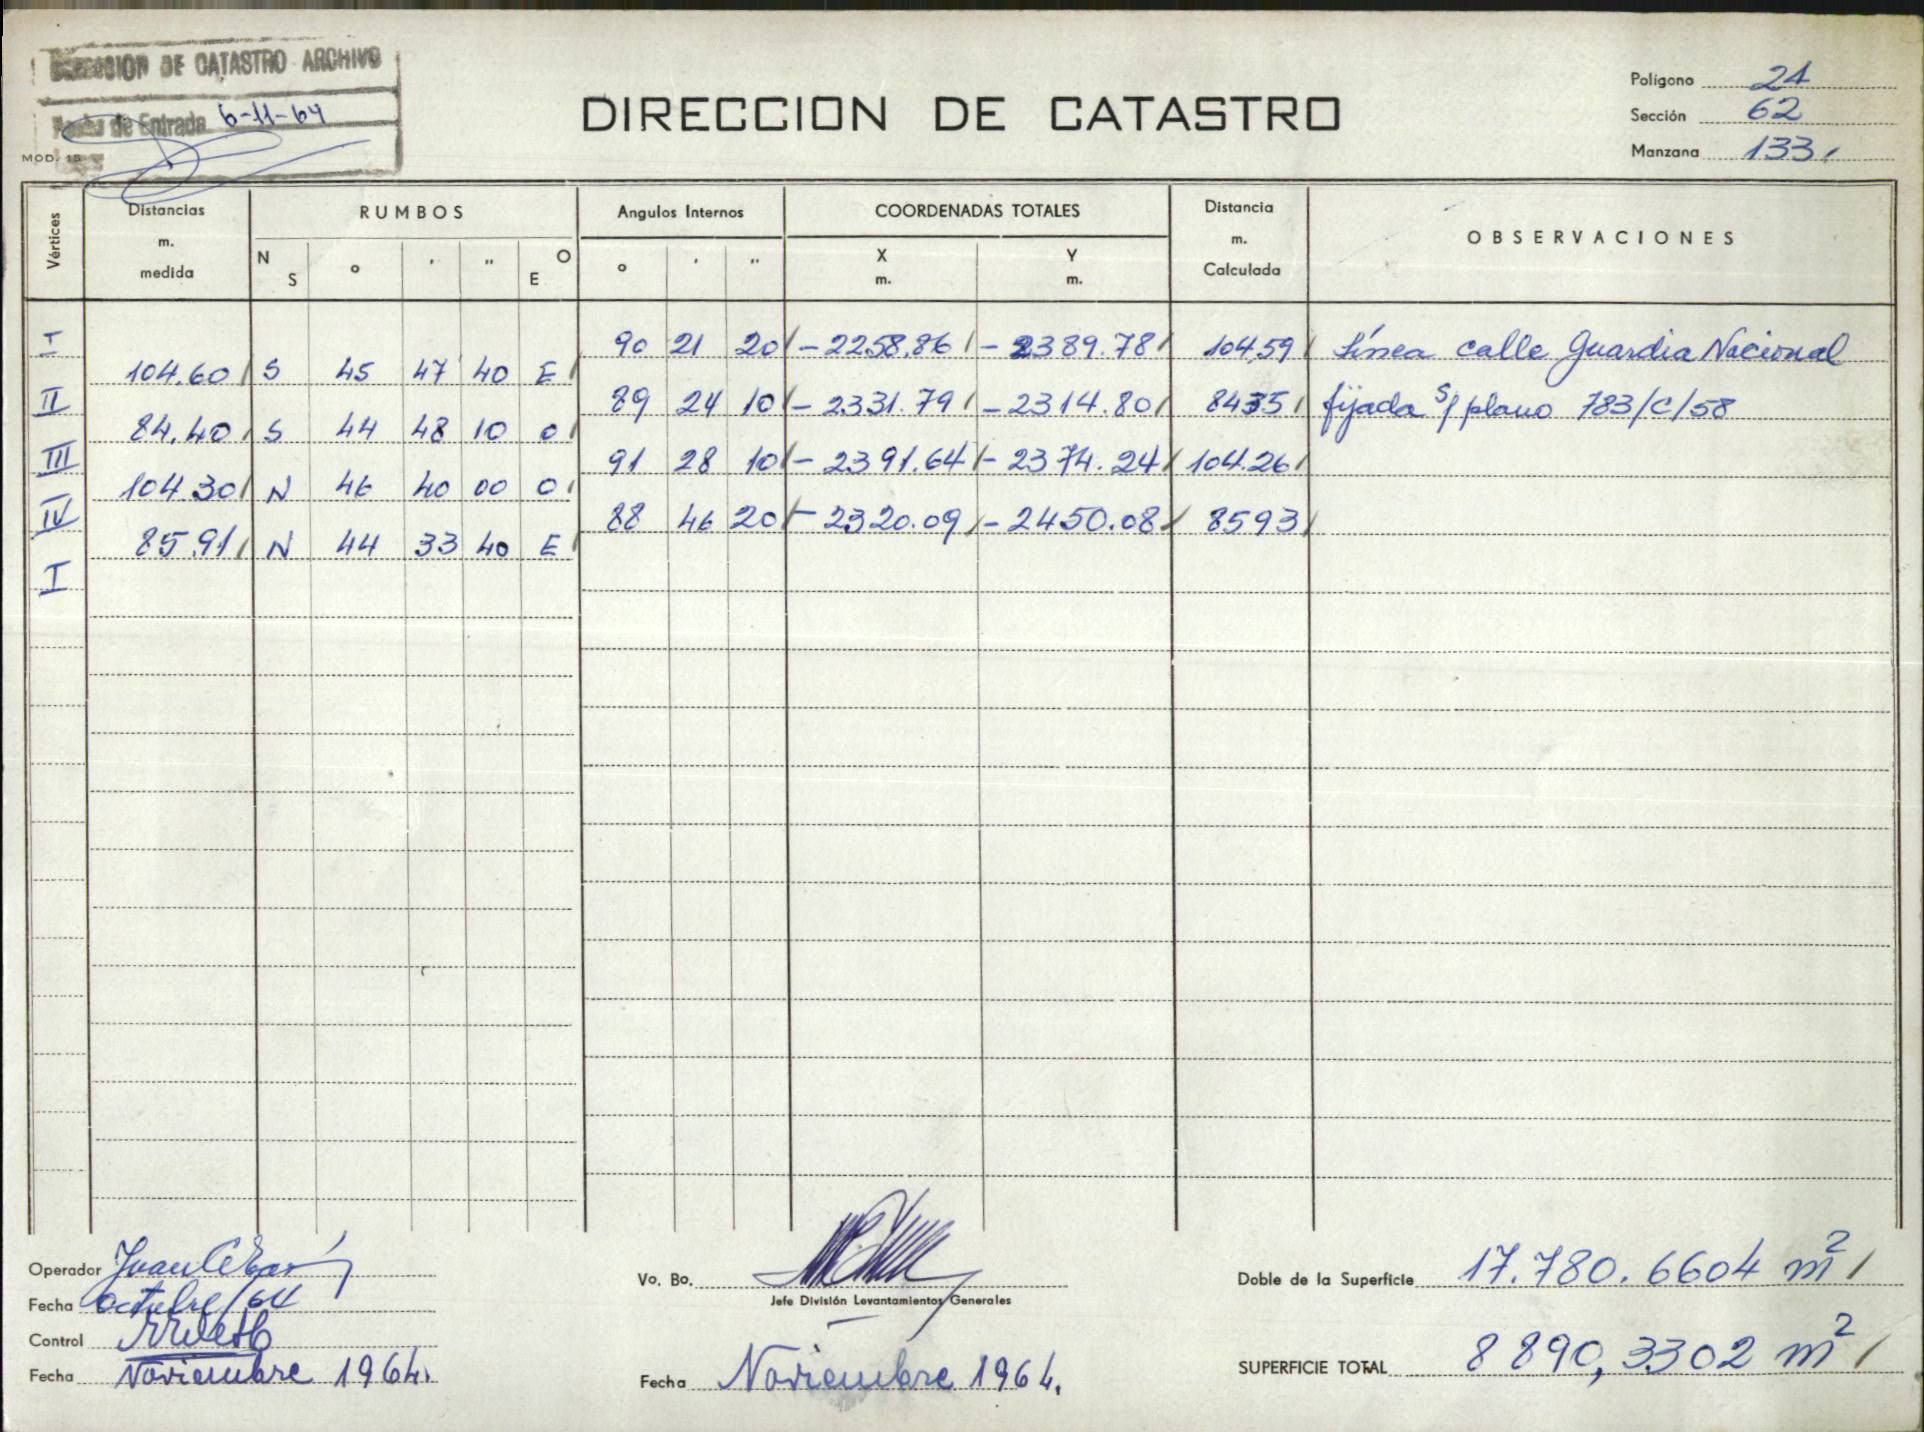 DIRECCION DE CATASTRO ARCHIVO
Fecha de Entrada 6-11-64
MOD. 15
DIRECCION DE CATASTRO
Polígono 24
Sección 62
Manzana 133.
Vértices
Distancias m. medida
RUMBOS
N S ° ' " E O
Angulos Internos
° ' "
COORDENADAS TOTALES
X m. Y m.
Distancia m. Calculada
OBSERVACIONES
I 90 21 20 -2258.86 -2389.78 104.59 Línea calle Guardia Nacional
104.60 S 45 47 40 E
II 89 24 10 -2331.79 -2314.80 84.35 fijada s/ plano 783/C/58
84.40 S 44 48 10 O
III 91 28 10 -2391.64 -2374.24 104.26
104.30 N 46 40 00 O
IV 88 46 20 -2320.09 -2450.08 8593
85.91 N 44 33 40 E
I
Operador
Fecha octubre/64
Control
Fecha Noviembre 1964.
Vo. Bo.
Jefe División Levantamientos Generales
Fecha Noviembre 1964.
Doble de la Superficie 17.780.6604 m²
SUPERFICIE TOTAL 8890,3302 m²